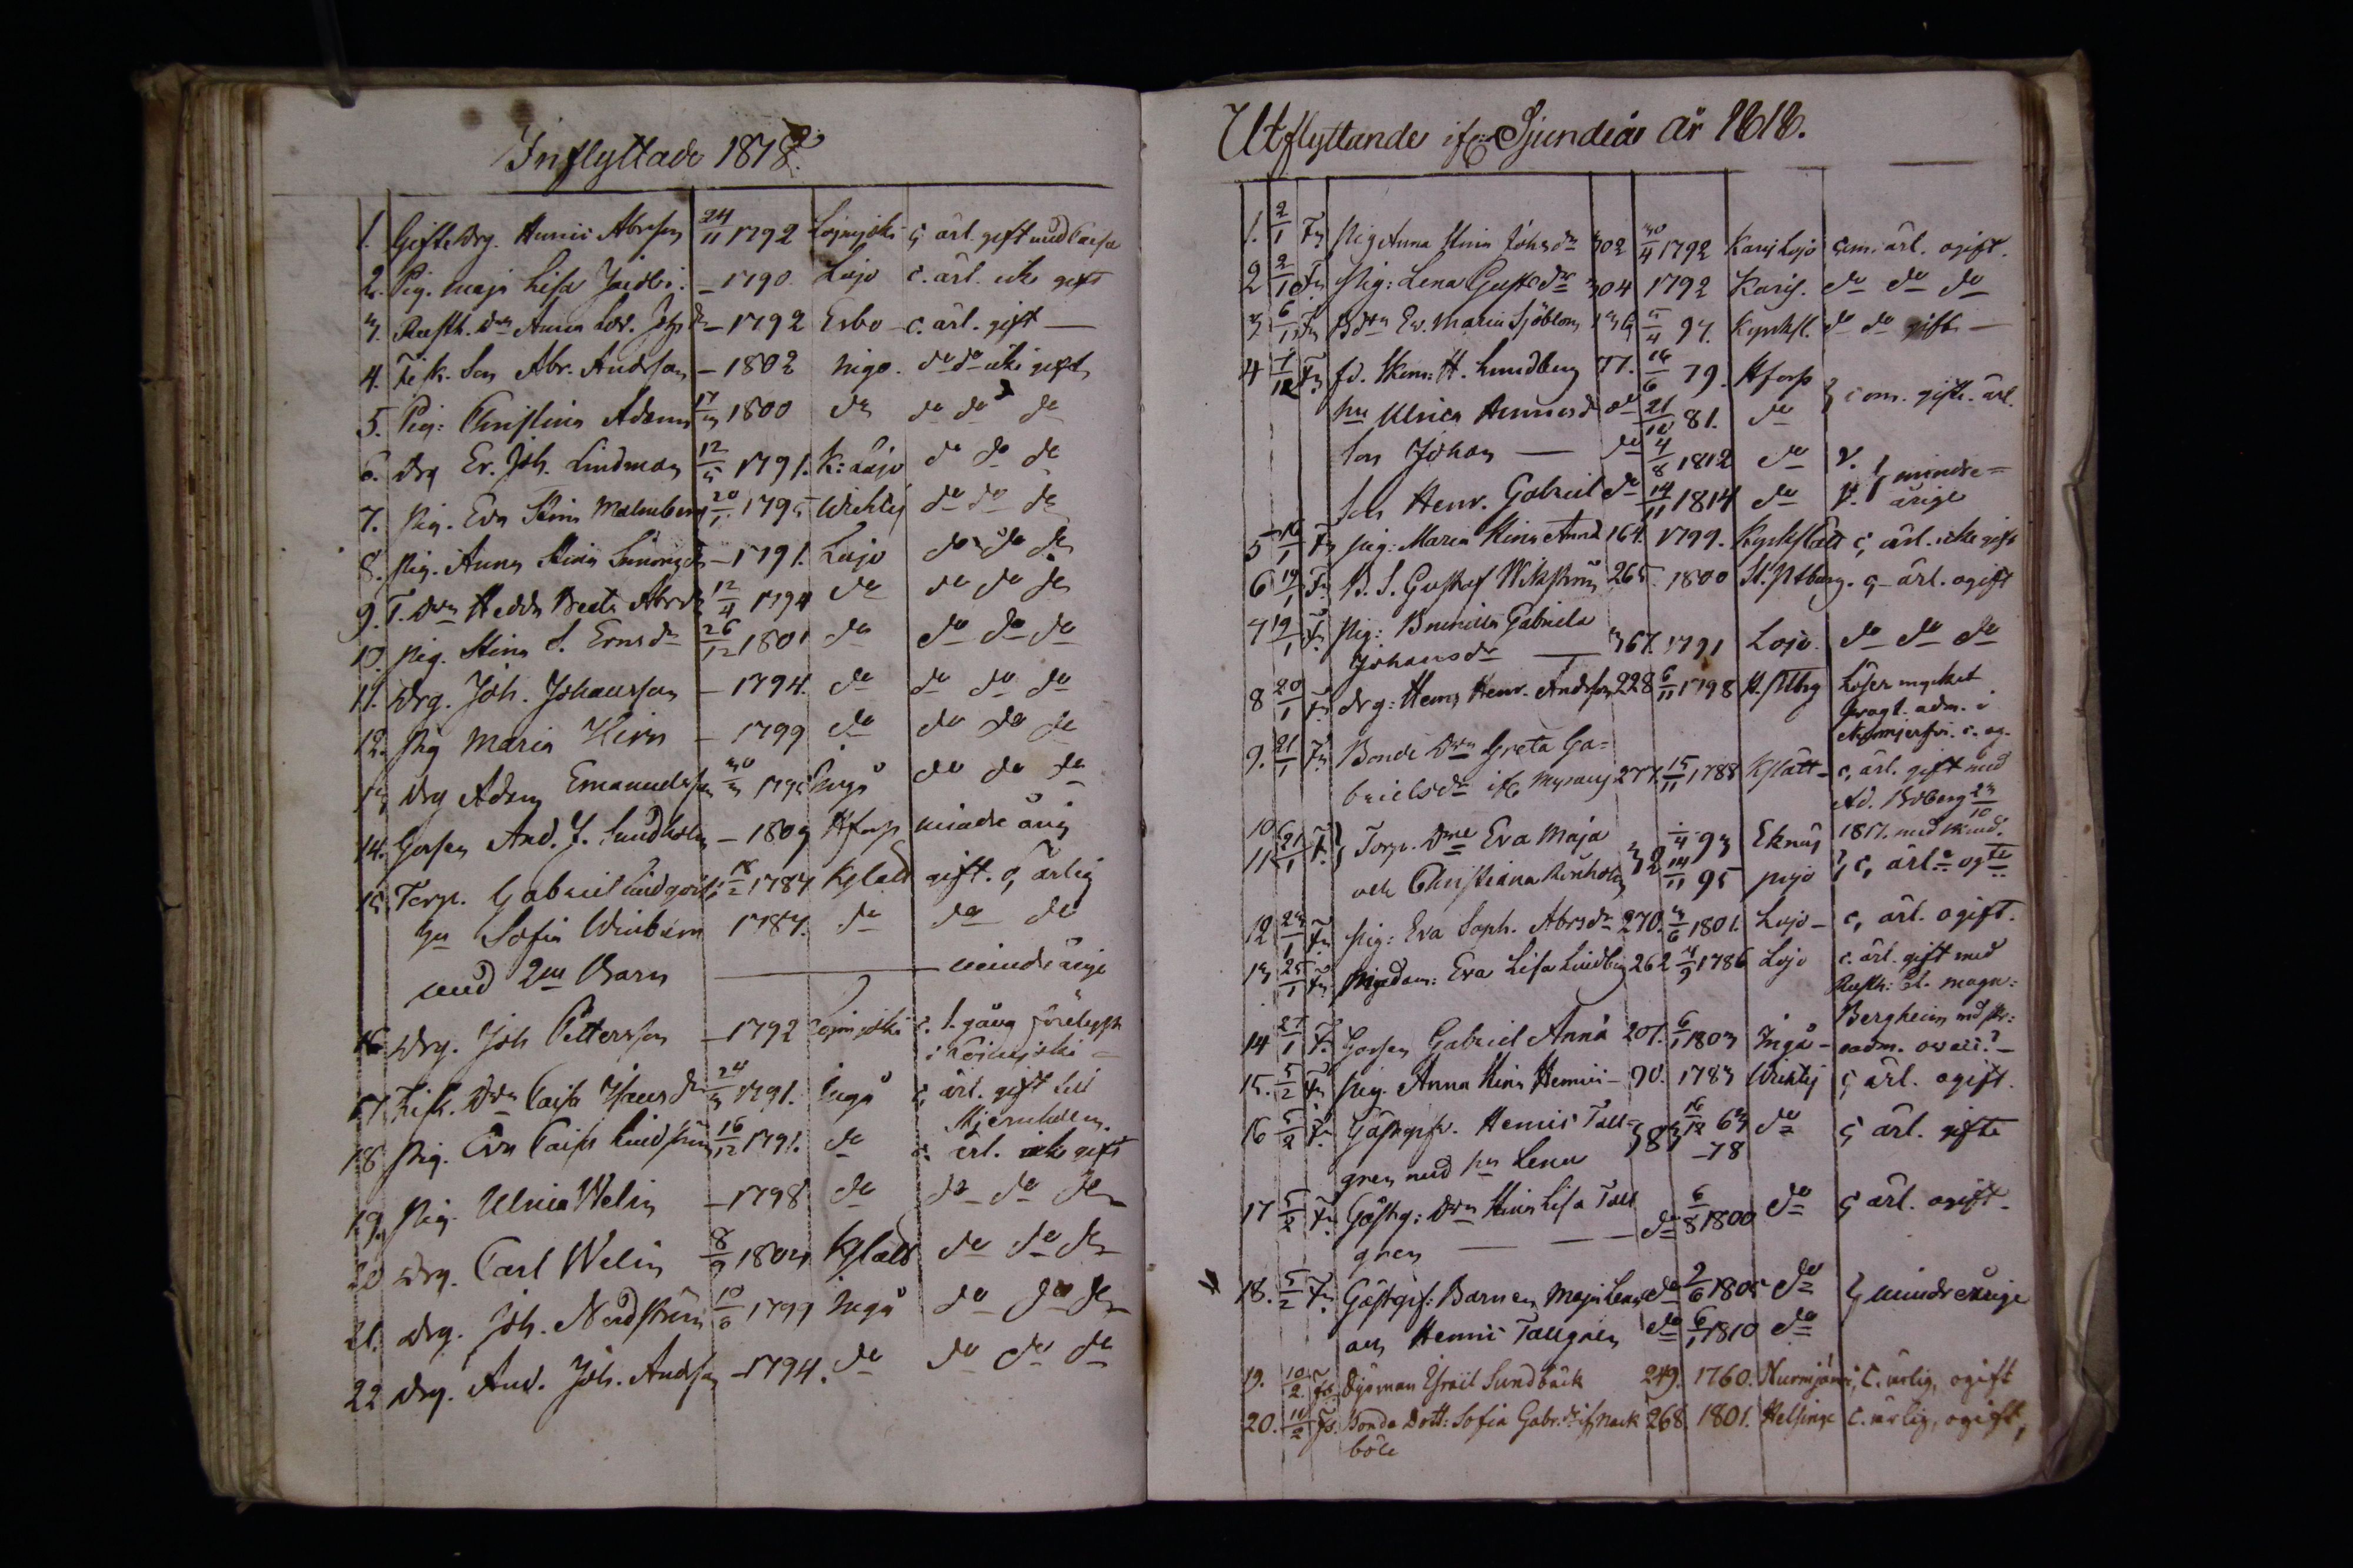 Inflyttade 1818.
1. Gift Drg. Henric Abrsson 24/11 1792 Lojmjoki c, ärl. gift med Caisa
2. Pig. Maja Lisa Jacobs: – 1790. Lojo c. ärl. icke gift
3. Rusth. Dn Anna Lov. Johs dr – 1792 Esbo c. ärl. gift —
4. Fisk. Son Abr. Andrson – 1802 Ingo. do do icke gift
5. Pig: Christina Adams 17/3 1800 do do do do
6. Drg Er. Joh. Lindman 12/5 1791. K: Lojo do do do
7. Pig. Eva Stina Malmberg 20/1 1795 Wichtis do do do
8. Pig. Anna Stina Simons dr – 1791. Lojo do do do
9. T. Dn Hedda Beata Abrsdr 12/4 1794 do do do do
10. Pig. Stina S. Ernsdr 26/12 1801 do do do do
11. Drg. Joh. Johansson – 1794. do do do do
12. Pig Maria Hirn – 1799 do do do do
13 Drg Adam Emanuelsson 30/3 1795 Ingå do do do
14. Gossen And. J. Sundholm – 1809 Hfors mindreårig
15. Torp. Gabriel Lindqvist 18/2 1787 Kslätt gift. c, ärlig
hu Sofia Winbärn 1787. do do do
med 2ne Barn — mindreårige
16 Drg. Joh Pettersson – 1792 Lojmjoki c. 1. gång förelyst
i Loimjoki –
17. Fisk. Dn Caisa Isacsdr 24/3 1791. Ingå c, ärl. gift till
Stjernholm.
18 Pig. Eva Caisa Lindström 16/12 1791. do c. ärl. icke gift
19. Pig. Ulrica Welin – 1798 do do do do
20 Drg. Carl Welin 8/9 1804 Kslätt do do do
21. Drg. Joh. Nordström 10/6 1799 Ingå do do do
22 Drg. And. Joh. Andrson – 1794. do do do do
Utflyttande ifr. Sjundeå år 1818.
1. 2/1 Fn Pig Anna Stina Johsdr 302 30/4 1792 Karis Lojo com. ärl. ogift.
2 2/1 Fn Pig: Lena Gustsdr 304 1792 Karis. do do do
3 6/1 Fn B dtn Ev. Maria Sjöblom 136 5/4 97. Kyrksl. do do gift —
4 7/1 Fn fd. Skom: H. Lundberg 77. 16/6 79. Hfors
hu Ulrica Henricsd do 21/10 81. do } com. gifte. ärl.
Son Johan — do 4/8 1812 do v. } mindre=
Son Henr. Gabriel do 14/11 1814 do v. årige
5 16/1 Fn Pig: Maria Stina And 164. 1799. Kyrkslätt c, ärl. icke gift
6 19/1 Fn B. S. Gustaf Wikström 265. 1800 St. Ptburg. c, ärl. ogift
7 19/1 Fn Pig: Brunilla Gabriela
Johansdr — 367. 1791 Lojo. do do do
8 20/1 Fn drg: Hans Henr. Andrson 228 6/11 1798 St. Ptbrg Läser mycket
svagt. adm. i
Nurmjerfvi. c. og.
9. 21/1 Fn Bonde Dn Greta Ga=
brielsdr ifr. Myrans 277. 15/11 1788 Kslätt – c, ärl. gift med
Ad. Boberg 23/10
1817. med
10 11 21/1 Fn } Torp. Dne Eva Maja
och Christiana Renholm 32 –/4 93 14/11 95 Eknäs Pojo } c, ärl. ogte
12 23/1 Fn Pig: Eva Soph. Abrsdr 270. 3/6 1801. Lojo – c, ärl. ogift.
13 25/1 Fn Pigedom: Eva Lisa Lindberg 262 4/9 1786 Lojo c. ärl. gift med
Rusth: El. Magn:
Bergheim med
14 27/1 Fn Gossen Gabriel Annå 207. 6/1 1803 Ingå – oadm.
15. 5/2 Fn Pig. Anna Stina Henric – 90. 1783 Wichtis c, ärl. ogift.
16 5/2 Fn Gästgifv. Henric Tall=
gren med hu Lena 383 16/12 63 –78 do c, ärl. gifte
17 5/2 Fn Gästg: Dn Stina Lisa Tall
gren — — do 6/8 1800 do c, ärl. ogift –
18. 5/2 Fn Gästgif: Barnen Maja Lena do 2/6 1805 do } mindreårige
och Henric Tallgren do 6/1 1810 do
19. 10/2 Fn Dysman Efraël Sundbäck 249. 1760. Nurmjärvi, C. ärlig, ogift
20. 10/2 Fn Bonde Dott: Sofia Gabr.dr ifr. Pack 268. 1801. Helsinge C. ärlig, ogift,
böle